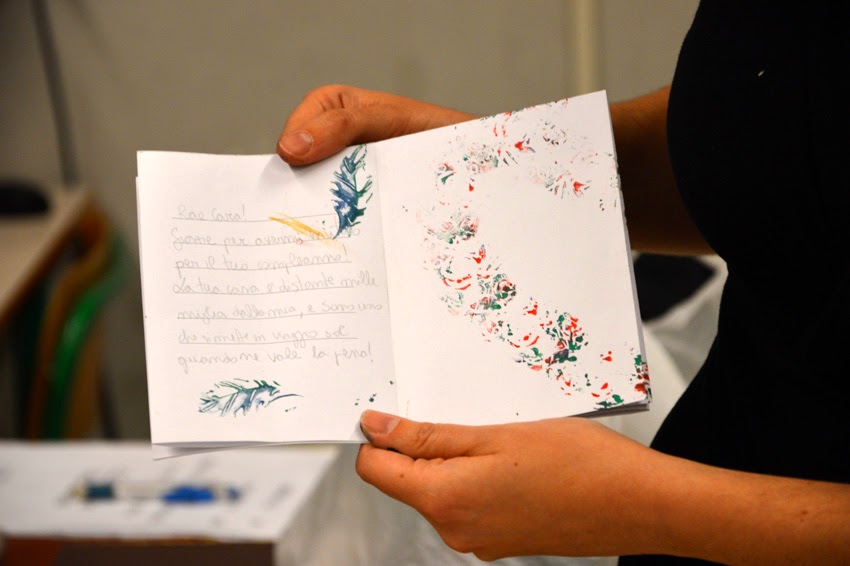 Rae Cara!
Grazie per avermi
per il tuo compleanno!
La tua casa è distante mille
miglia dalla mia, e sono uno
che si mette in viaggio sol
quando ne vale la pena!